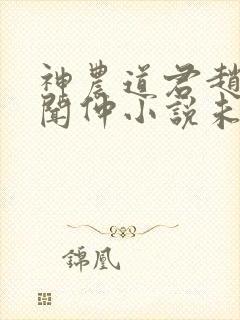 神農道君趙
聞仲小說未
錦凰